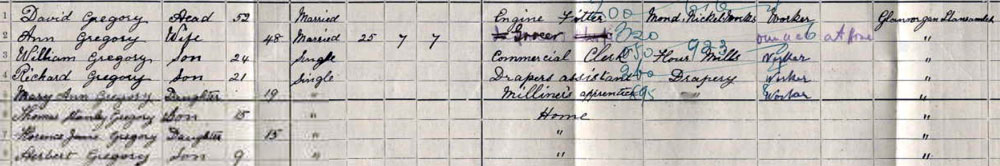 David Gregory Head 52 Married Engine Fitter Mond Nickel Works Worker Glamorgan Llansamlet
2 Ann Gregory Wife 48 Married 25 7 7 Grocer own acct at home "
3 William Gregory Son 24 Single Commercial Clerk Flour Mills Worker "
4 Richard Gregory Son 21 Single Drapers assistant Drapery Worker "
5 Mary Ann Gregory Daughter 19 " Milliner's apprentice " Worker "
6 Thomas Stanley Gregory Son 15 " Home "
7 Florence Janie Gregory Daughter 13 " " "
8 Herbert Gregory Son 9 " " "